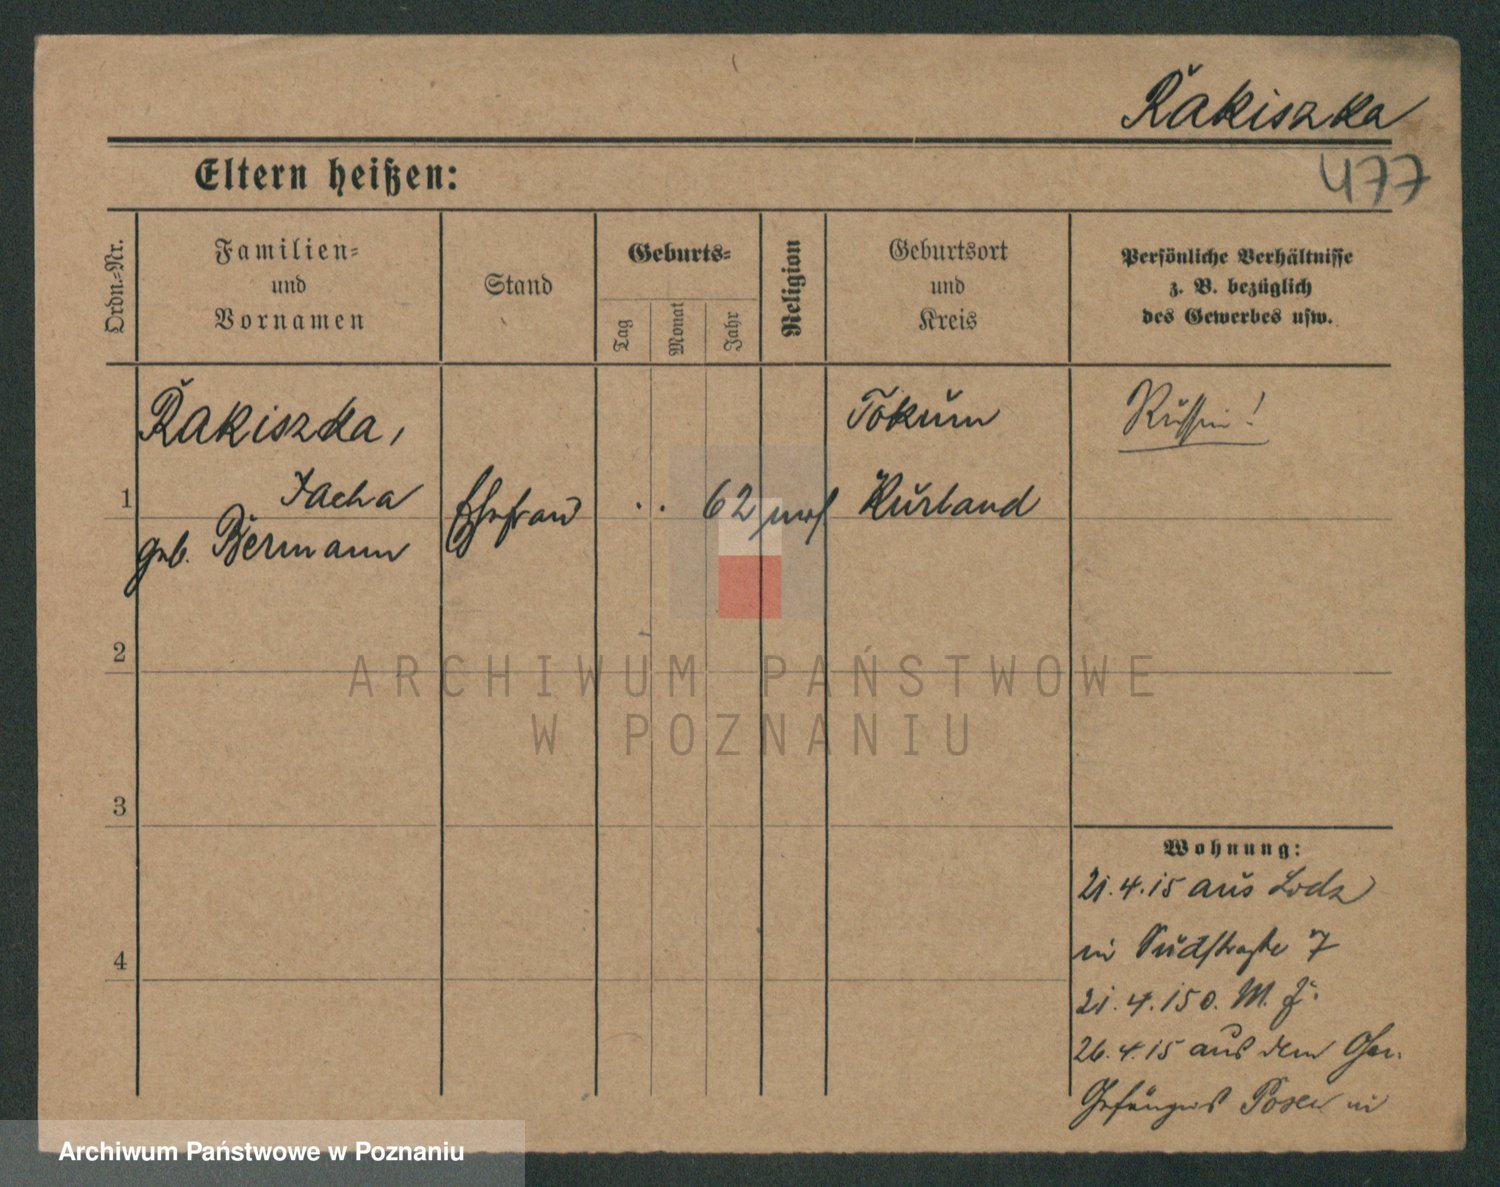 Rakiszka
477
Eltern heißen:
Ordn.-Nr.
Familien-
und
Vornamen
Stand
Geburts-
Tag
Monat
Jahr
Religion
Geburtsort
und
Kreis
Persönliche Verhältnisse
z. B. bezüglich
des Gewerbes usw.
1
Rakiszka,
Jacha
geb. Bermann
Ehefrau
. . 62
mos
Tokum
Kurland
Russin!
2
3
4
Wohnung:
21.4.15 aus Lodz
in Südstraße 7
21.4.15 o. M. F.
26.4.15 aus dem Ger.
Gefängnis Posen in
ARCHIWUM PAŃSTWOWE
W POZNANIU
Archiwum Państwowe w Poznaniu